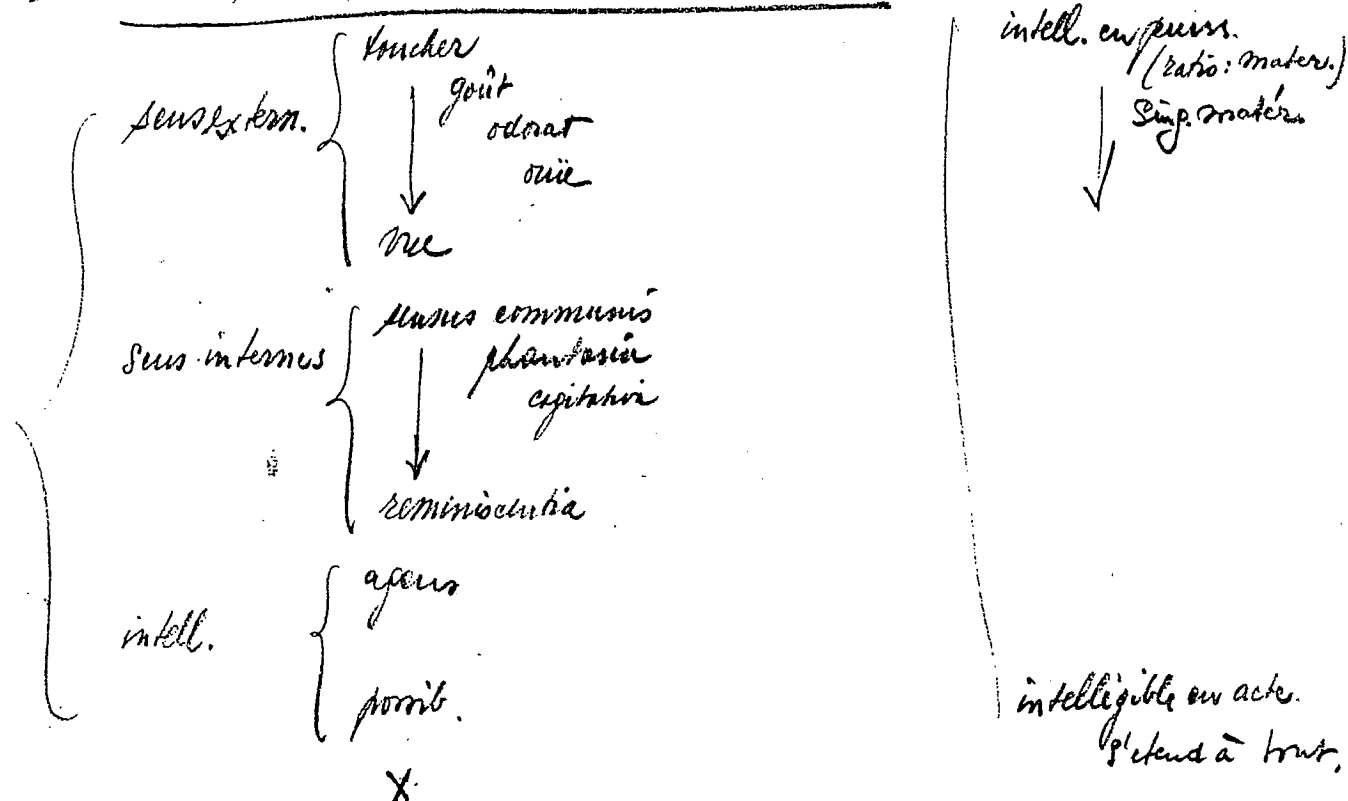 toucher
goût
odorat
ouïe
vue
sens extern.
sensus communis
phantasia
cogitativa
reminiscentia
sens internes
agens
possib.
intell.
X
intell. en puiss.
(ratio: mater.)
Sing. matér.
intelligible en acte.
s'étend à tout.